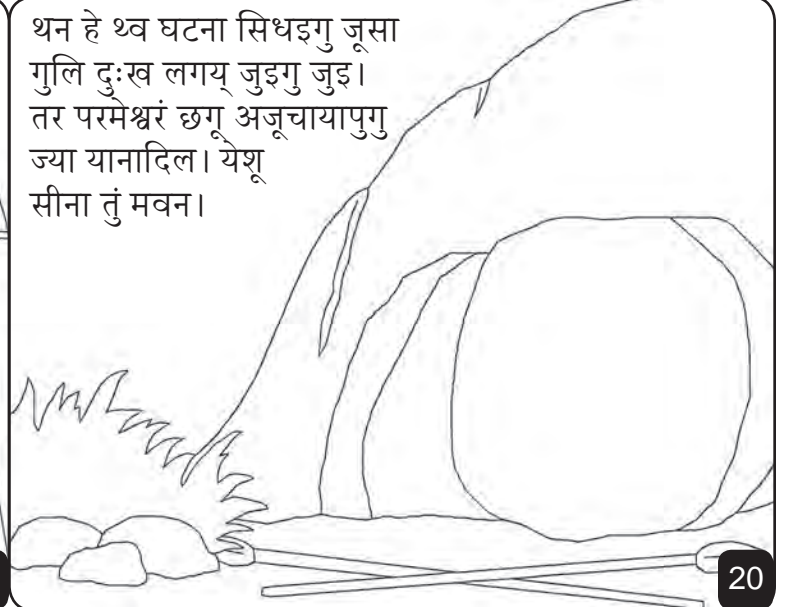 थन हे थ्व घटना सिधइगु जूसा
गुलि दुःख लगय् जुइगु जुइ।
तर परमेश्वरं छगू अजूचायापुगु
ज्या यानादिल। येशू
सीना तुं मवन।
20